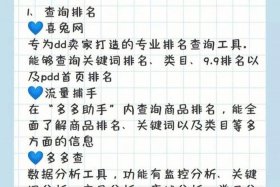 1、查询排名
💙喜兔网
专为dd卖家打造的专业排名查询工具，
能够查询关键词排名、类目、9.9排名以
及pdd首页排名
💙流量捕手
在“多多助手”内查询商品排名，能全
面了解商品排名、关键词以及类目等多
方面的信息
💙多多查
数据分析工具，功能有监控分析、关键